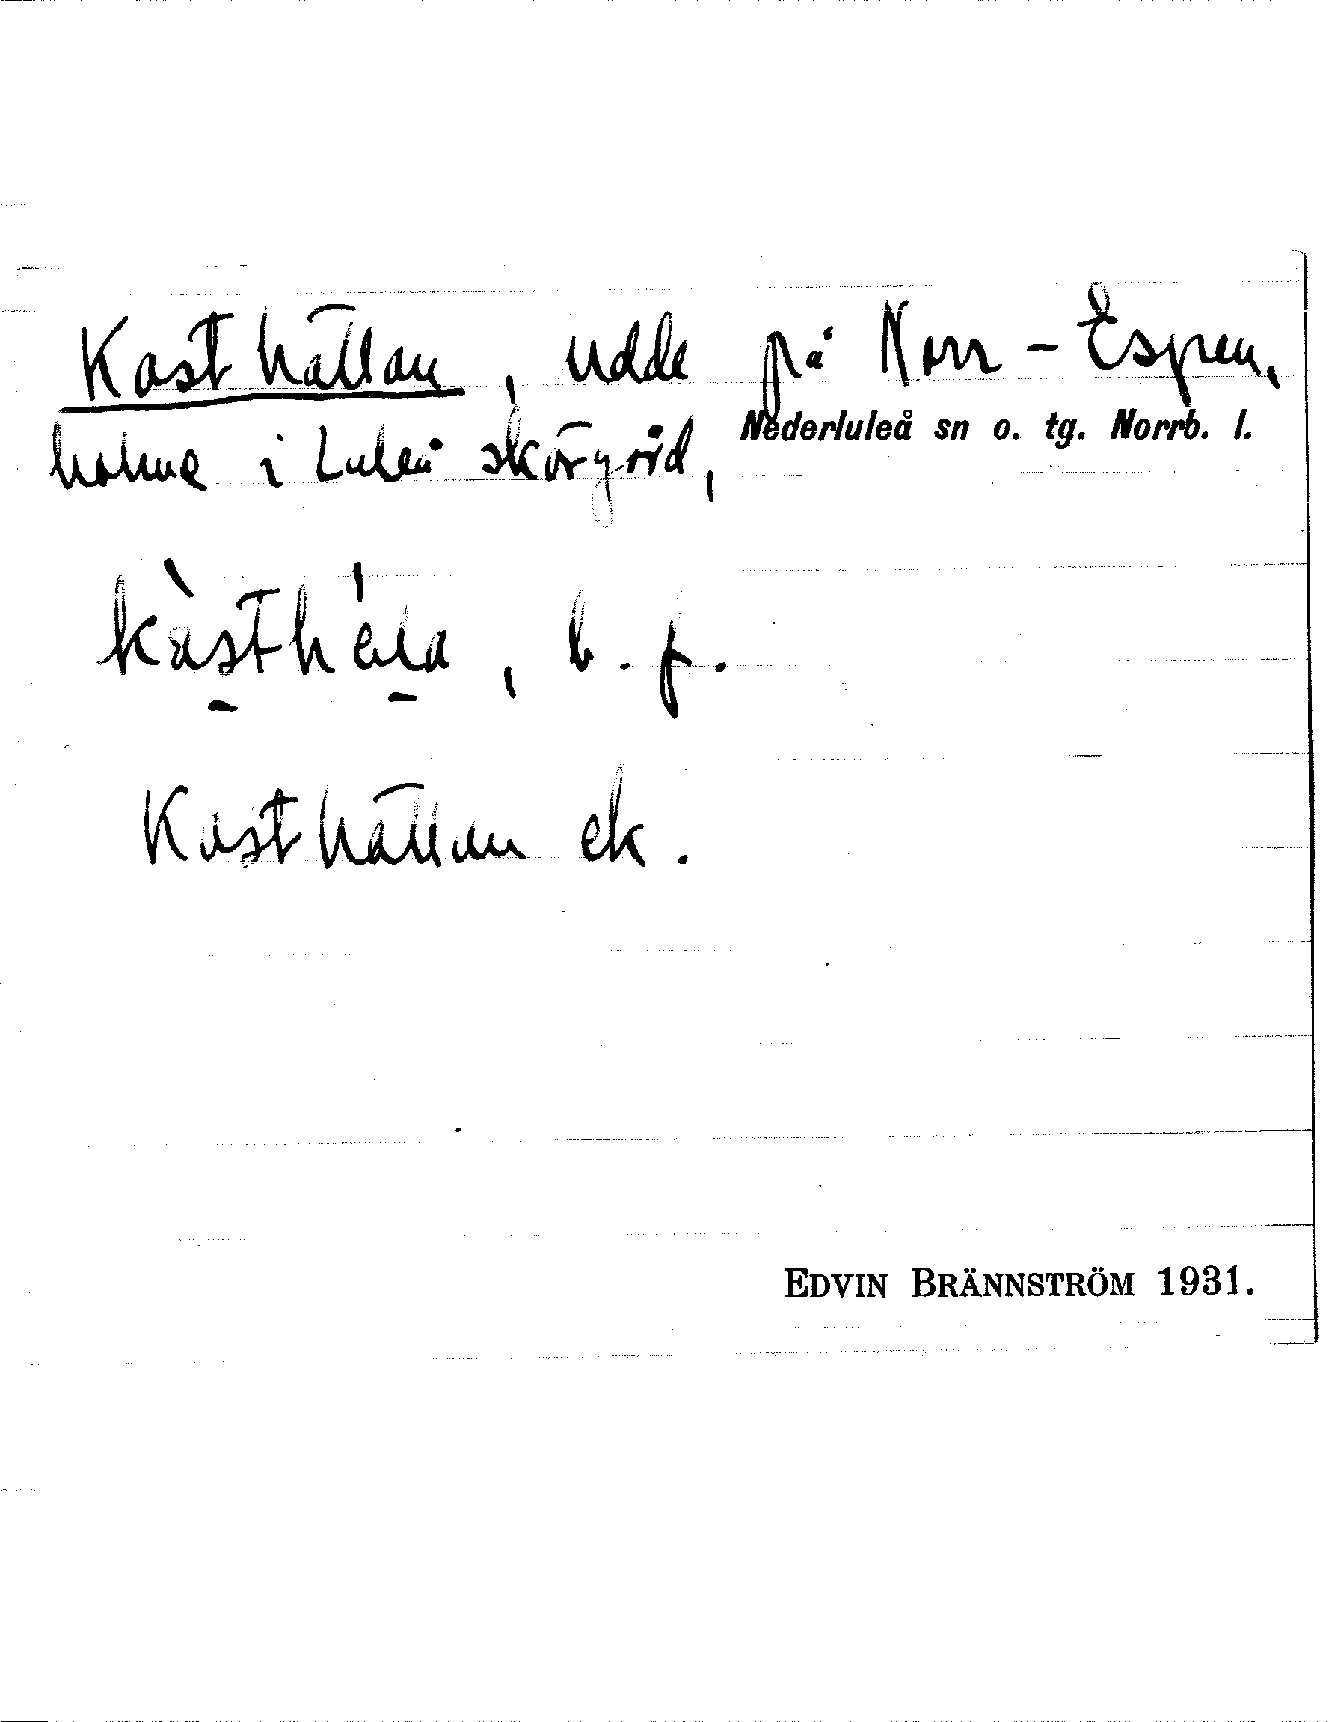 Kasthällan, udde på Norr-Espen,
holme i Luleå skärgård, Nederluleå sn o. tg. Norrb. l.
b. f.
Kasthällan ek.
EDVIN BRÄNNSTRÖM 1931.